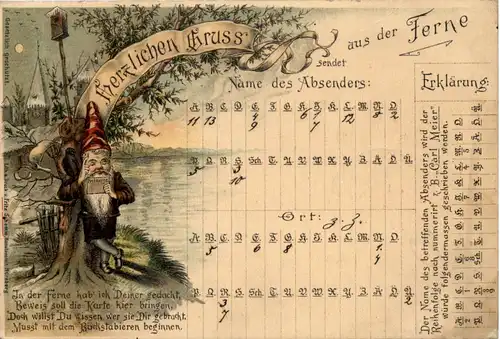 Herzlichen Gruss
sendet
aus der Ferne
Name des Absenders:
A B C D E F G H I K L M N O
11 13 4 6 7 12 8 2
9 7
P Q R S Sch T U V W X Y Z
5 3
10
Ort: z. Z.
A B C D E F G H I K L M N O
5 6 8 1
4
P Q R S Sch T U V W X Y Z
3
7
In der Ferne hab' ich Deiner gedacht,
Beweis soll die Karte hier bringen;
Doch willst Du wissen, wer sie Dir gebracht,
Musst mit dem Buchstabieren beginnen.
Erklärung:
Der Name des betreffenden Absenders wird der
Reihenfolge nach nummerirt z. B. „Carl Meier“
würde folgendermassen geschrieben werden.
Gesetzlich geschützt